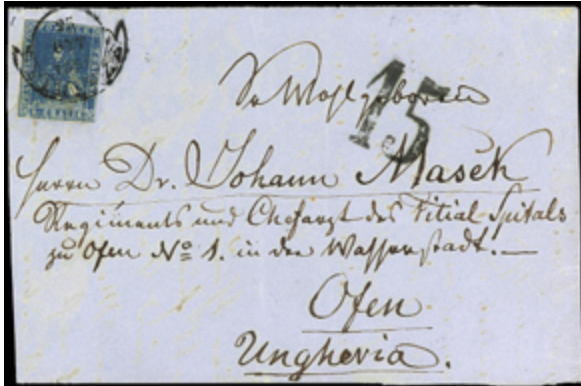 15
Sr Wohlgeboren
Herrn Dr. Johann Mašek
Regiments und Chefarzt des Filial Spitals
zu Ofen No 1. in der Wasserstadt.—
Ofen
Ungheria.